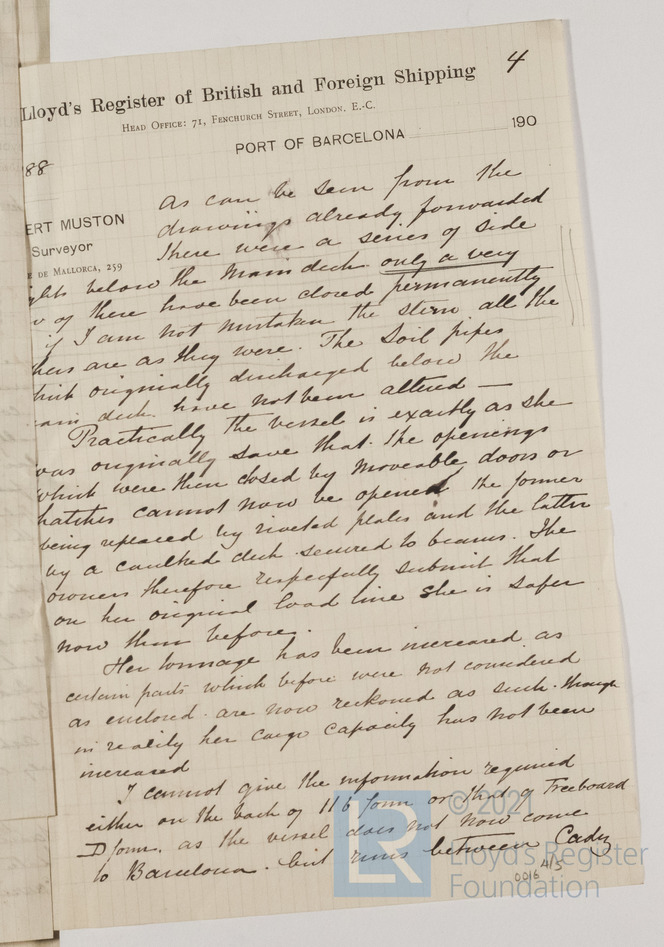 4
Lloyd's Register of British and Foreign Shipping
HEAD OFFICE: 71, FENCHURCH STREET, LONDON. E.-C.
PORT OF BARCELONA 190
88
ERT MUSTON
Surveyor
E DE MALLORCA, 259
As can be seen from the
drawings already forwarded
there were a series of side
ghts below the main deck only a very
w of these have been closed permanently
if I am not mistaken the stern all the
hers are as they were. The Soil pipes
hich originally discharged below the
ain deck have not been altered —
Practically the vessel is exactly as she
was originally save that the openings
which were then closed by moveable doors or
hatches cannot now be opened the former
being replaced by riveted plates and the latter
by a caulked deck secured to beams. The
owners therefore respecfully submit that
on her original load line she is safer
now than before.
Her tonnage has been increased as
certain parts which before were not considered
as enclosed are now reckoned as such. though
in reality her cargo capacity has not been
increased
I cannot give the information required
either on the back of 116 form or that of Freeboard
D form. as the vessel does not now come
to Barcelona. but runs between Cadiz
0016 4/5
LR
© 2021
Lloyd's Register
Foundation